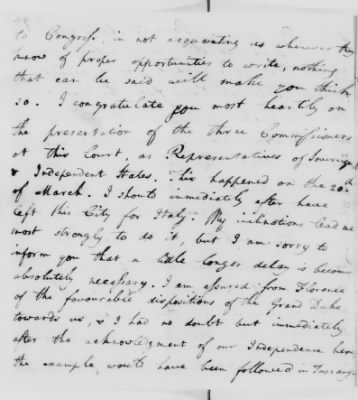 to Congress, in not acquainting us whenever they
know of proper opportunities to write, nothing
that can be said will make you think
so. I congratulate you most heartily on
the presentation of the three Commissioners
at this Court, as Representatives of Sovereign
& Independent States. This happened on the 20th
of March. I should immediately after have
left this City for Italy. My inclinations lead me
most strongly to do it, but I am sorry to
inform you that a little longer delay is become
absolutely necessary. I am assured from Florence
of the favourable dispositions of the Grand Duke
towards us, & I had no doubt but immediately
after the acknowledgment of our Independence here,
the example, would have been followed in Tuscany